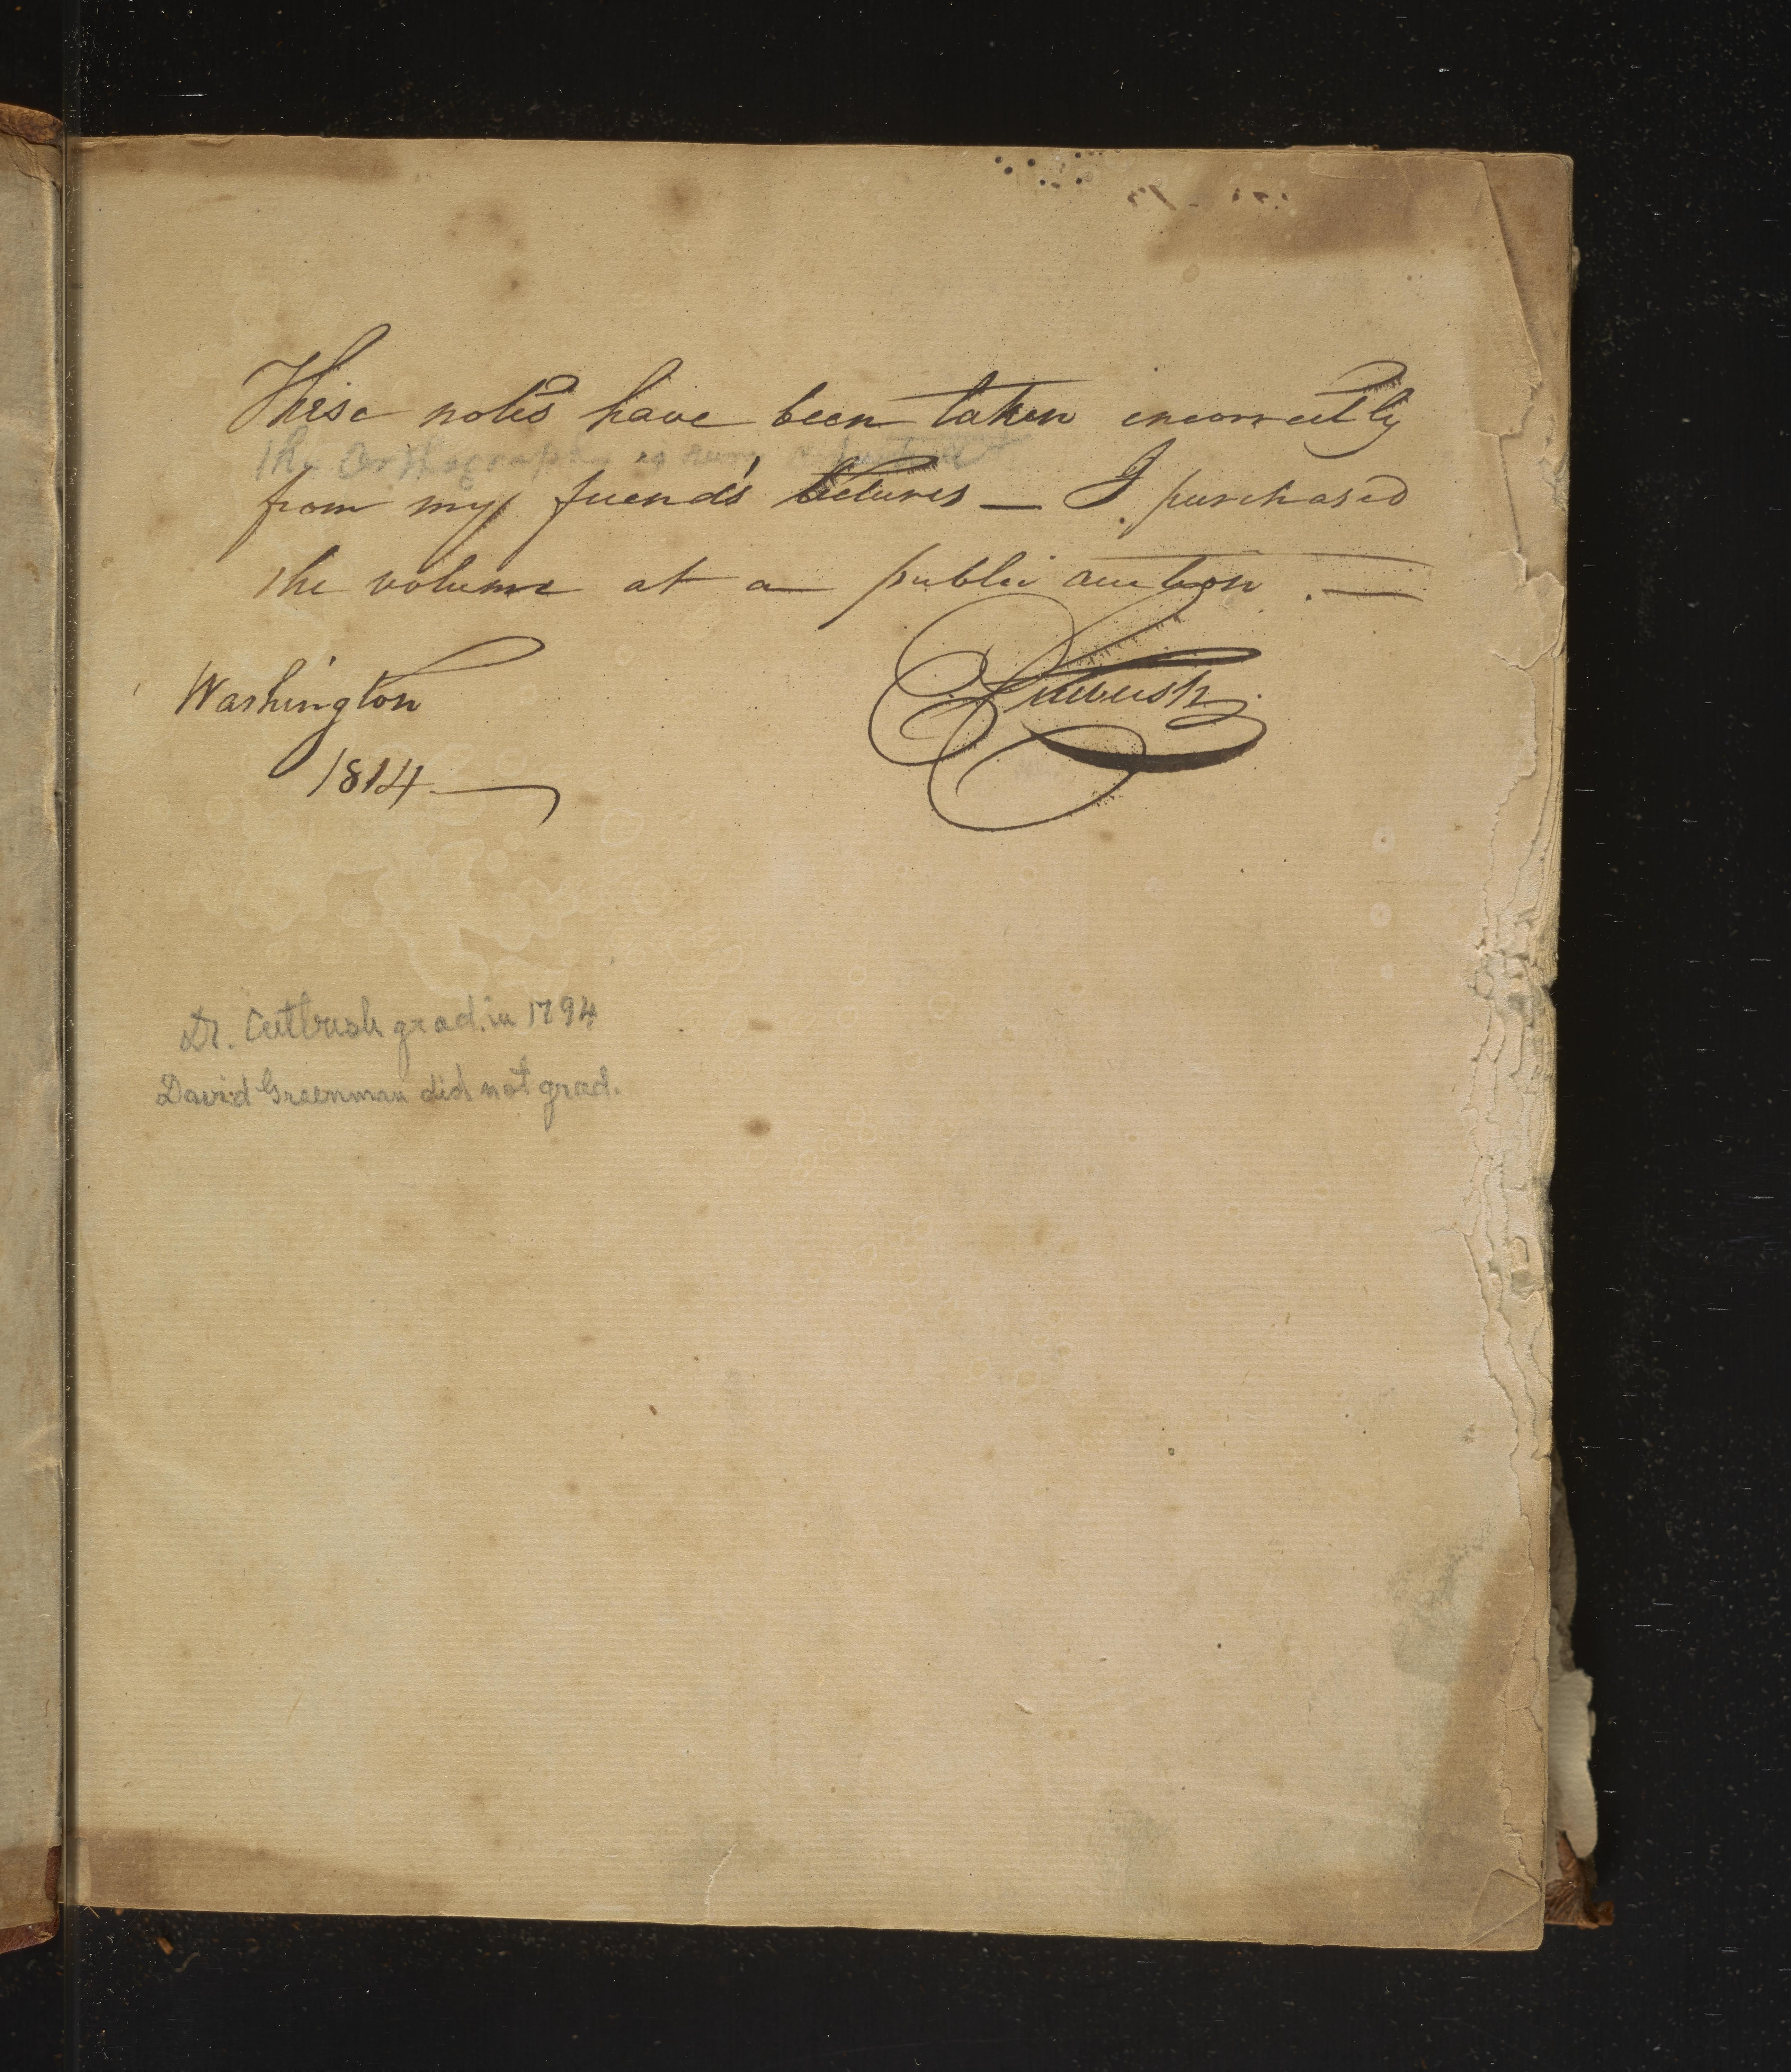 These notes have been taken incorrectly
the Orthography is
from my friend's Lectures — I purchased
the volume at a public auction . —
Washington
Cutbush
1814 —
Dr. Cutbush grad. in 1794
David Greenman did not grad.